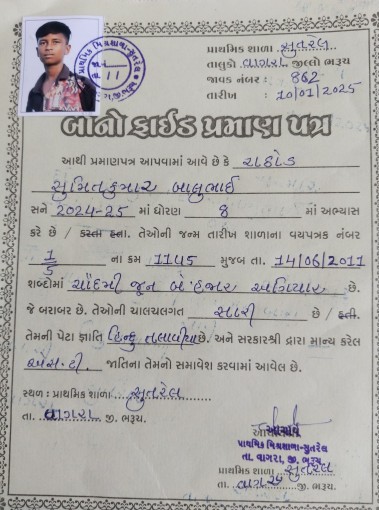 પ્રાથમિક શાળા સુતરેલ
તાલુકો વાગરા જીલ્લો ભરૂચ
જાવક નંબર : 862
તારીખ : 10/01/2025
બોનોફાઈડ પ્રમાણ પત્ર
આથી પ્રમાણપત્ર આપવામાં આવે છે કે રાઠોડ
સુમિતકુમાર બાલુભાઈ
સને 2024-25 માં ધોરણ 8 માં અભ્યાસ
કરે છે / કરતા હતા. તેઓની જન્મ તારીખ શાળાના વયપત્રક નંબર
1/5 ના ક્રમ 1145 મુજબ તા. 14/06/2011
શબ્દોમાં ચૌદમી જૂન બે હજાર અગિયાર છે.
જે બરાબર છે. તેઓની ચાલચલગત સારી છે / હતી.
તેમની પેટા જ્ઞાતિ હિન્દુ તલાવીયા છે. અને સરકારશ્રી દ્વારા માન્ય કરેલ
એસ.ટી. જાતિના તેમનો સમાવેશ કરવામાં આવેલ છે.
સ્થળ : પ્રાથમિક શાળા સુતરેલ
તા. વાગરા જી. ભરૂચ.
આચાર્ય
પ્રાથમિક મિશ્રશાળા-સુતરેલ
તા. વાગરા, જી. ભરૂચ
પ્રાથમિક શાળા સુતરેલ
તા. વાગરા જી. ભરૂચ.